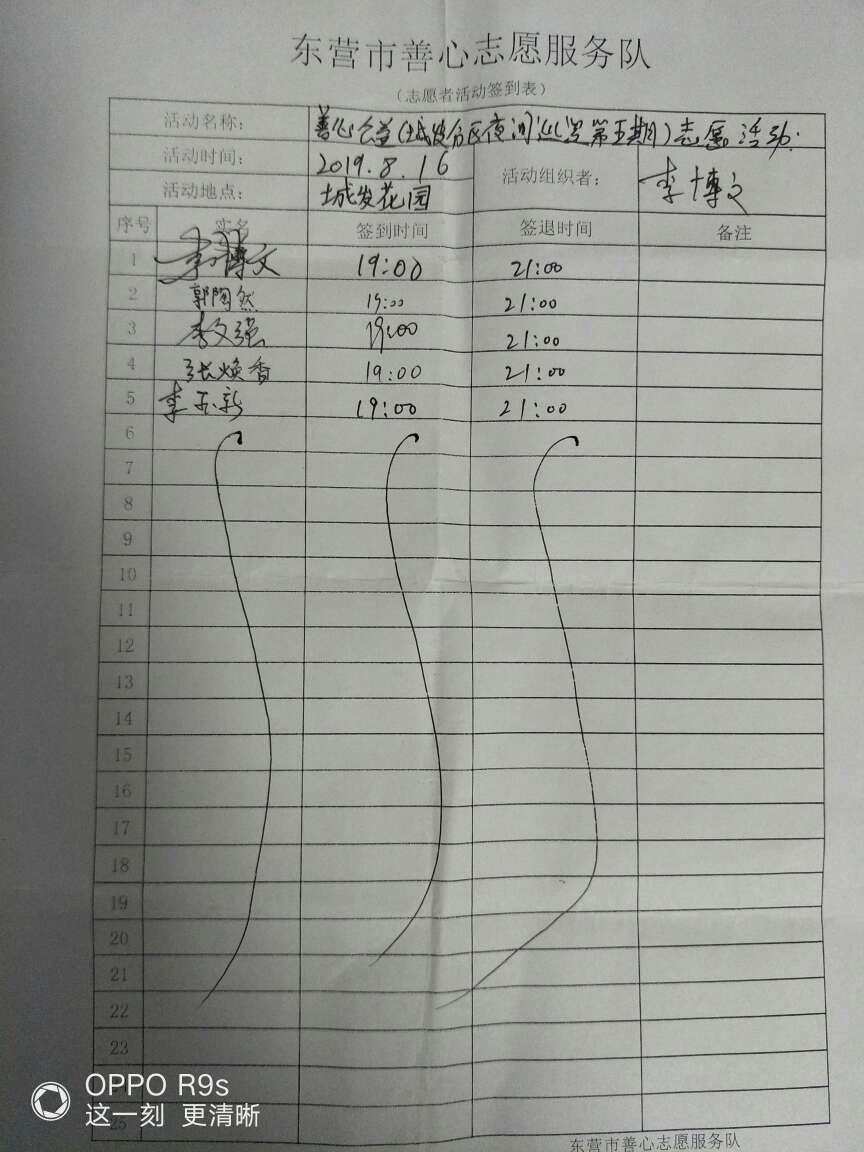 东营市善心志愿服务队
（志愿者活动签到表）
活动名称： 善心公益（城发分区夜间巡逻第五期）志愿活动.
活动时间： 2019.8.16 活动组织者： 李博文
活动地点： 城发花园
序号 实名 签到时间 签退时间 备注
1 李博文 19:00 21:00
2 郭陶然 19:00 21:00
3 李文强 19:00 21:00
4 张焕香 19:00 21:00
5 李玉新 19:00 21:00
6
7
8
9
10
11
12
13
14
15
16
17
18
19
20
21
22
23
25
东营市善心志愿服务队
OPPO R9s
这一刻 更清晰